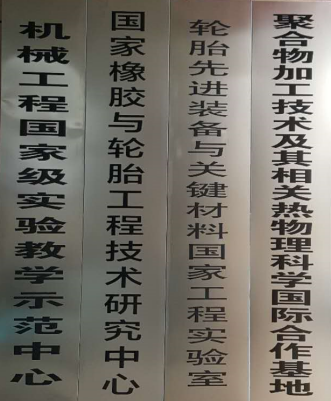 机械工程国家级实验教学示范中心
国家橡胶与轮胎工程技术研究中心
轮胎先进装备与关键材料国家工程实验室
聚合物加工技术及其相关热物理科学国际合作基地